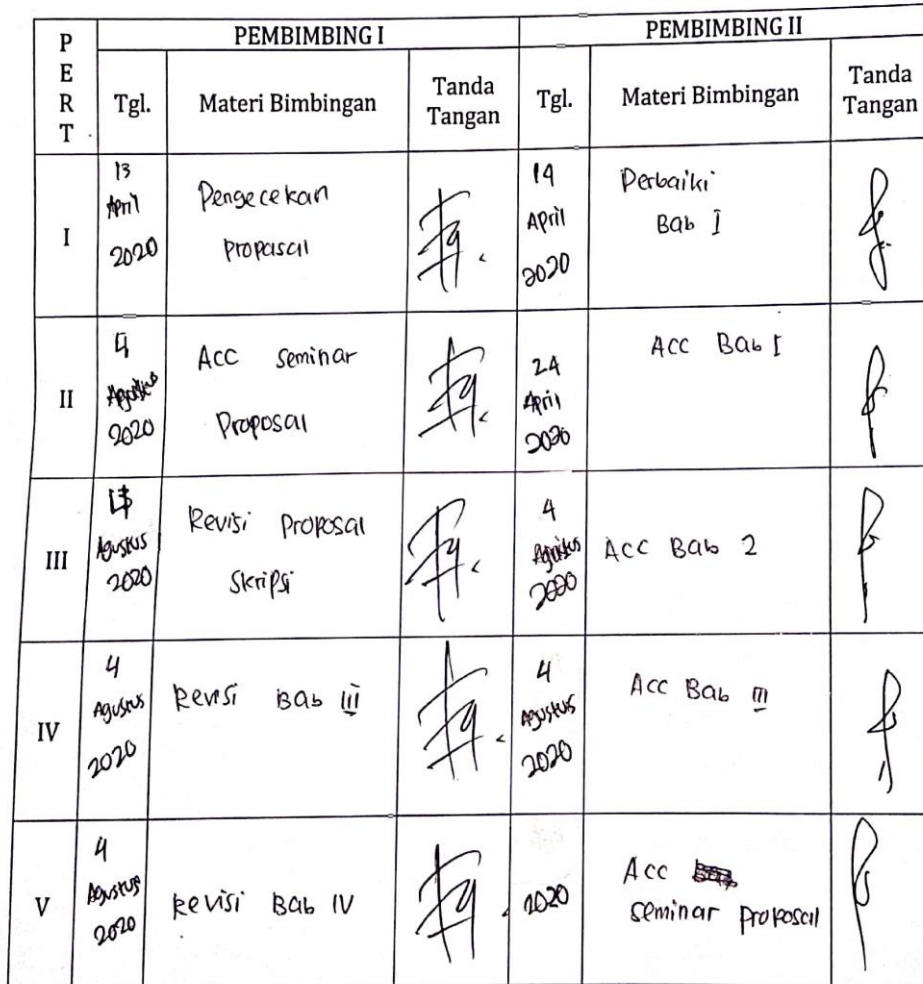 PERT
PEMBIMBING I
PEMBIMBING II
Tgl.
Materi Bimbingan
Tanda
Tangan
Tgl.
Materi Bimbingan
Tanda
Tangan
I
13
April
2020
Pengecekan
Proposal
14
April
2020
Perbaiki
Bab I
II
4
Agustus
2020
Acc seminar
Proposal
24
April
2020
Acc Bab I
III
Agustus
2020
Revisi Proposal
Skripsi
4
Agustus
2020
Acc Bab 2
IV
4
Agustus
2020
Revisi Bab III
4
Agustus
2020
Acc Bab III
V
4
Agustus
2020
Revisi Bab IV
2020
Acc
seminar proposal